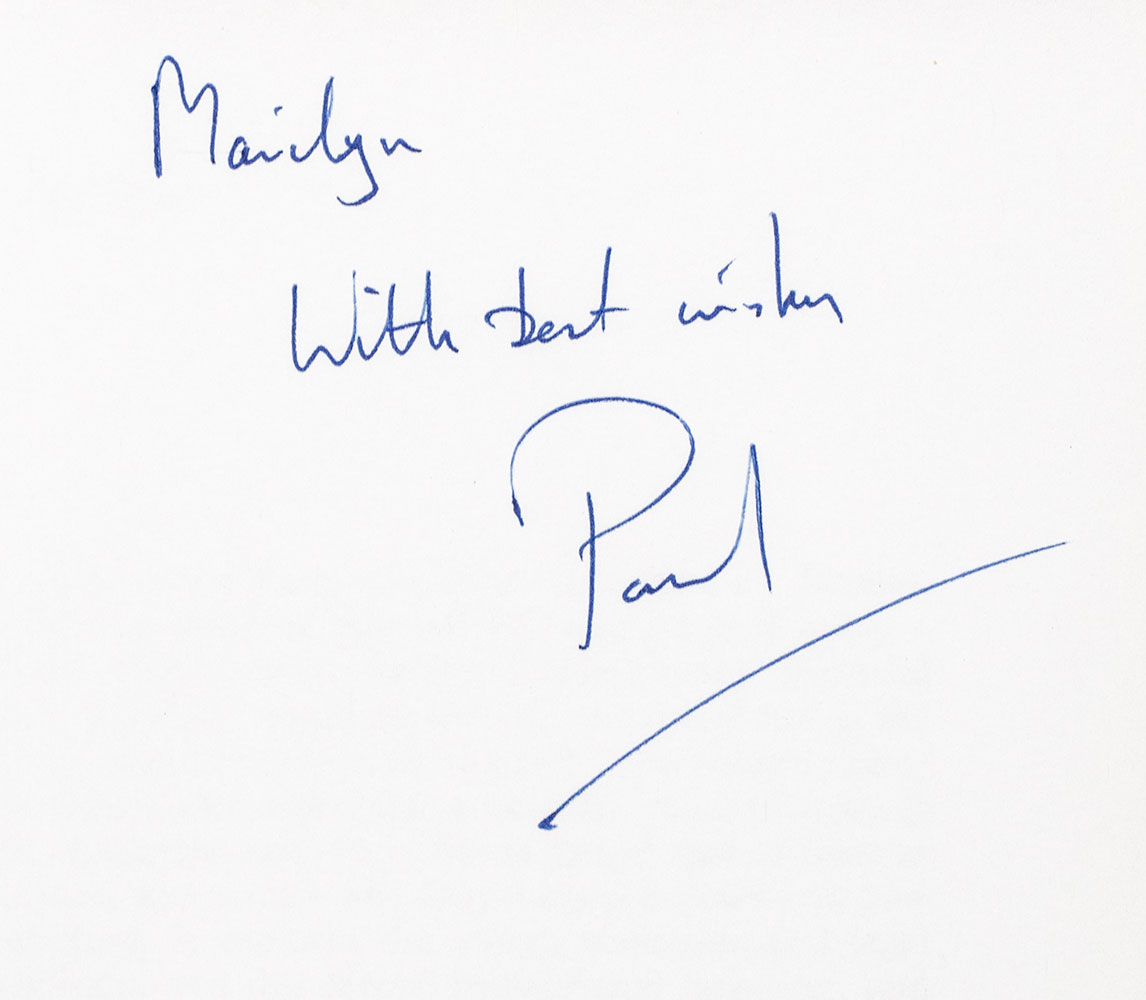 Marilyn
With best wishes
Paul